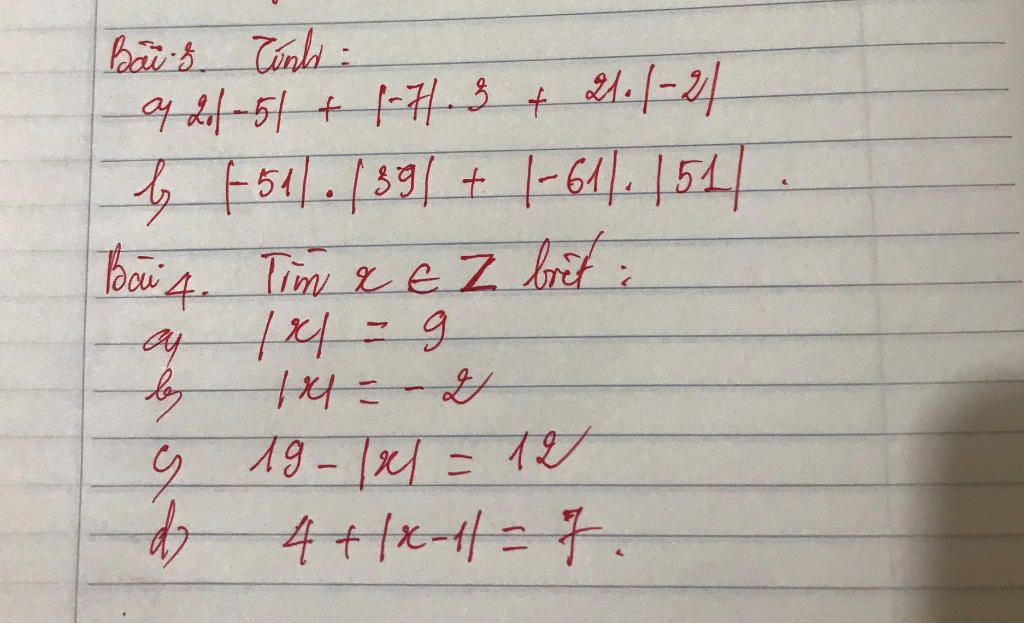 Bài 3. Tính :
a) 2.|-5| + |-7|. 3 + 21.|-2|
b) |-51| . |39| + |-61| . |51| .
Bài 4. Tìm x ∈ Z biết :
a) |x| = 9
b) |x| = - 2
c) 19 - |x| = 12
d) 4 + |x-1| = 7 .